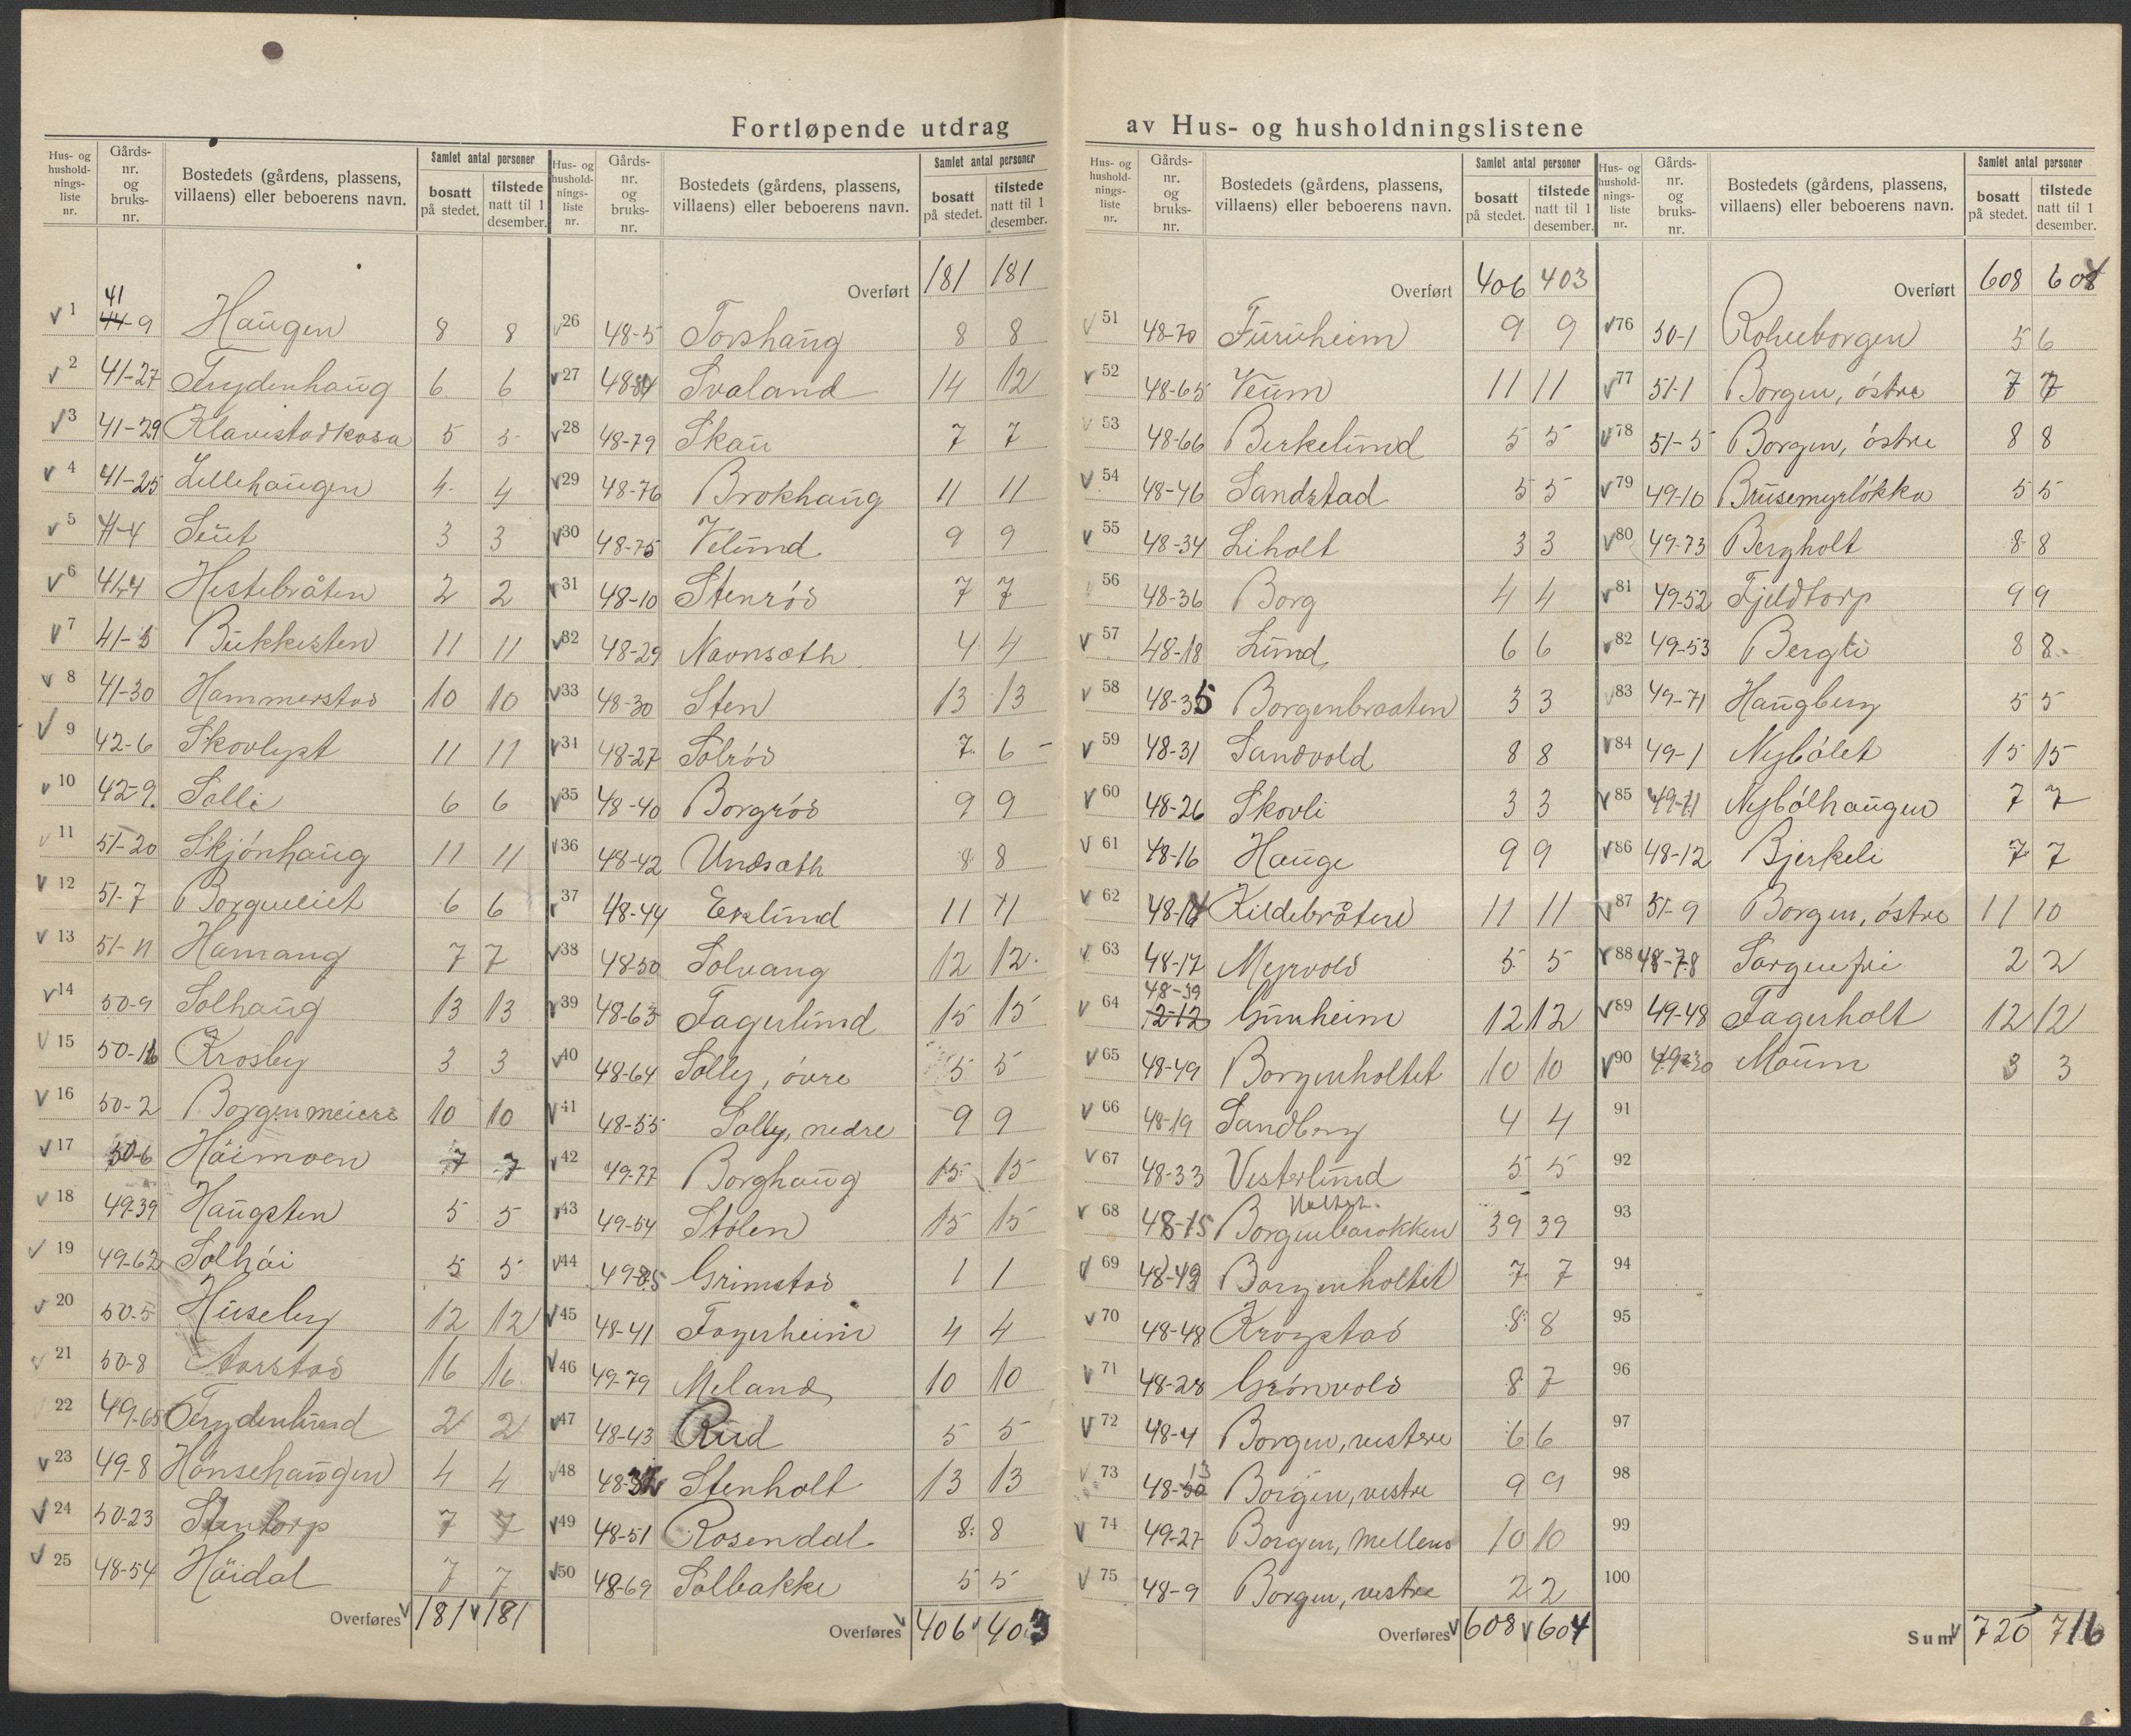 Fortløpende utdrag av Hus- og husholdningslistene
Hus- og husholdningsliste nr. | Gårds-nr. og bruks-nr. | Bostedets (gårdens, plassens, villaens) eller beboerens navn. | Samlet antal personer bosatt på stedet. | tilstede natt til 1 desember.
1 41 44-9 Haugen 8 8
2 41-27 Frydenhaug 6 6
3 41-29 Klavestadkosa 5 5
4 41-25 Lillehaugen 4 4
5 41-4 Sŭt 3 3
6 41-4 Hestebråten 2 2
7 41-5 Bukkesten 11 11
8 41-30 Hammerstad 10 10
9 42-6 Skovlyst 11 11
10 42-9 Solli 6 6
11 51-20 Skjönhaug 11 11
12 51-7 6 6
13 51-11 Hamang 7 7
14 50-9 Solhaug 13 13
15 50-16 Krosby 3 3
16 50-2 Borgenmeieri 10 10
17 50-6 Höimoen 7 7
18 49-39 Haugsten 5 5
19 49-62 Solhöi 5 5
20 50-5 Huseby 12 12
21 50-8 Aarstad 16 16
22 49-65 Frydenlund 2 2
23 49-8 Hönsehaugen 4 4
24 50-23 Stentorp 7 7
25 48-54 Höidal 7 7
Overføres 181 181
Overført 181 181
26 48-5 Torshaug 8 8
27 48-84 Svaland 14 12
28 48-79 Skau 7 7
29 48-76 Brokhaug 11 11
30 48-75 Velund 9 9
31 48-10 Stenröd 7 7
32 48-29 Navnsæth 4 4
33 48-30 Sten 13 13
34 48-27 Solröd 7 6
35 48-40 Borgröd 9 9
36 48-42 Undsæth 8 8
37 48-44 Eklund 11 11
38 48-50 Solvang 12 12
39 48-63 Fagerlund 15 15
40 48-64 Solly, övre 5 5
41 48-55 Solly, nedre 9 9
42 49-77 Borghaug 15 15
43 49-54 Stölen 15 15
44 49-85 Grimstad 1 1
45 48-41 Fagerheim 4 4
46 49-79 Meland 10 10
47 48-43 Rud 5 5
48 48-32 Stenholt 13 13
49 48-51 Rosendal 8 8
50 48-69 Solbakke 5 5
Overføres 406 403
Overført 406 403
51 48-70 Furuheim 9 9
52 48-65 Veum 11 11
53 48-66 Birkelund 5 5
54 48-46 Sandstad 5 5
55 48-34 Liholt 3 3
56 48-36 Borg 4 4
57 48-18 Lund 6 6
58 48-35 Borgenbraaten 3 3
59 48-31 Sandvold 8 8
60 48-26 Skovli 3 3
61 48-16 Hauge 9 9
62 48-14 Kildebråten 11 11
63 48-17 Myrvold 5 5
64 48-39 12-12 Gunheim 12 12
65 48-49 Borgenholtet 10 10
66 48-19 Sandberg 4 4
67 48-33 Vesterlund 5 5
68 48-15 Borgenbarakken 39 39
69 48-49 Borgenholtet 7 7
70 48-48 Krogstad 8 8
71 48-28 Grönvold 8 7
72 48-4 Borgen, vestre 6 6
73 48-30 13 Borgen, vestre 9 9
74 49-27 Borgen, mellem 10 10
75 48-9 Borgen, vestre 2 2
Overføres 608 604
Overført 608 604
76 50-1 Rolvsborgen 5 6
77 51-1 Borgen, östre 7 7
78 51-5 Borgen, östre 8 8
79 49-10 Brusemyrlökka 5 5
80 49-73 Bergholt 8 8
81 49-52 Fjeldtorp 9 9
82 49-53 Bergli 8 8
83 49-71 Haugberg 5 5
84 49-1 Nybölet 15 15
85 49-11 Nybölhaugen 7 7
86 48-12 Bjerkeli 7 7
87 51-9 Borgen, östre 11 10
88 48-78 Sorgenfri 2 2
89 49-48 Fagerholt 12 12
90 49-30 Moum 3 3
91
92
93
94
95
96
97
98
99
100
Sum 720 716